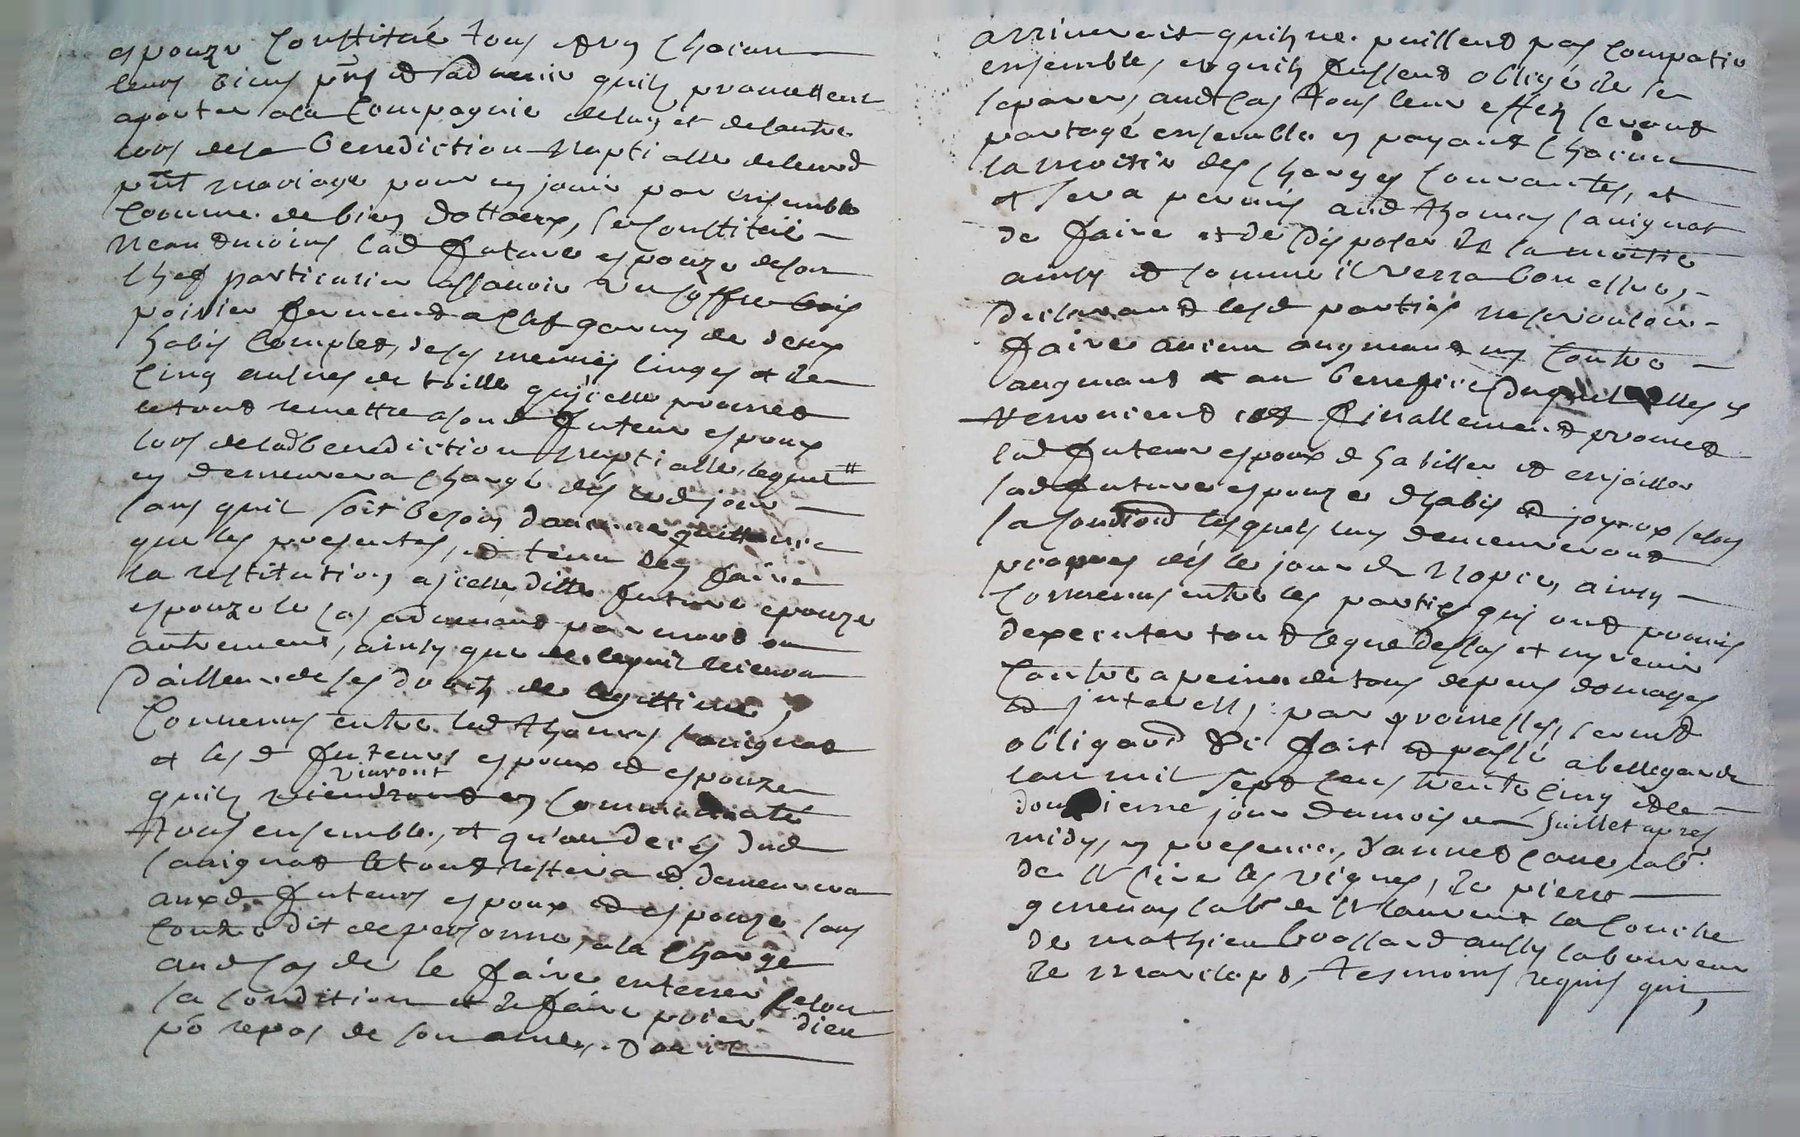 espouze Constitué tous et un Chacun
leurs biens pnts et advenir quils promettent
aporter a la Compagnie de lun et de lautre
lors de la benediction Nuptialle de leurd
pnt mariage pour en jouir par ensemble
Comme de biens dottaux, se Constitüe
Neandmoins lad future espouze de son
Chef particulier assavoir un coffre bois
poirier fermend a clef garny de deux
habis Complets, de ses menus linges et de
Cinq aulnes de toille quicelle promet
le tout remettre a sond futeur espoux
lors de lad benediction Nuptialle, lequel
en demeurera Chargé dés ced jour
sans quil soit besoin daucune quittance
que les presentes, et tenu den faire
la restitution a jcelle ditte future epouze
espouze le cas advenant par mort ou
autrement, ainsy que de ce quil recevra
dailleur de ses droits de legittime,
Convenus entre led Thomas Savignat
et lesd futeurs espoux et espouze
quils vivront en Communauté
tous ensemble, et qu'au deces dud
Savignat le tout restera et demeurera
auxd futeurs espoux et espouze sans
Contredit de personne, a la Charge
aud cas de le faire enterrer selon
sa Condition et de faire prier dieu
po repos de son ame, Do ou il
arriveroit quils ne puillent pas Compatir
ensemble, et quils fussent obligé de se
separer, aud cas tous leur effets seront
partagé ensemble en payant Chacun
la moitié des Charges Courantes, et
et sera permis aud Thomas Savignat
de faire et de disposer de sa moitié
ainsy et comme il verra bon estre,
declarant lesd parties ne vouloir
faire aucun augmant ny Contre
augmant et au benefice duquel elles y
renoncent et finallement promet
led futeur espoux d habiller et enjoiller
lad future espouze dhabis et joyaux selon
sa Condition lesquels luy demeureront
propres dés le jour de Nopce, ainsy
Convenus entre les parties qui ont promis
dexecuter tout ce que dessus et ny venir
Contre a peine de tous depens domages
et jnterests, par promesses, serment
obligaon &c fait et passé a bellegarde
lan mil sept cens trente cinq et le
douzieme jour du mois de Juillet apres
midy, en presence, d'annet lab
de St Cire les vignes, de pierre
lab de St Laurent la Conche
de mathieu aussy laboureur
de Marclopt, tesmoins requis qui,